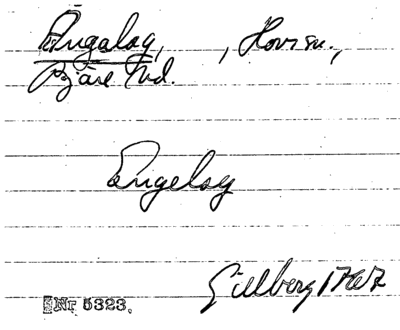 Ängalag, , Hovs sn.,
Bjäre hd.
Engelag
Gillberg 1767
Nr 5323.